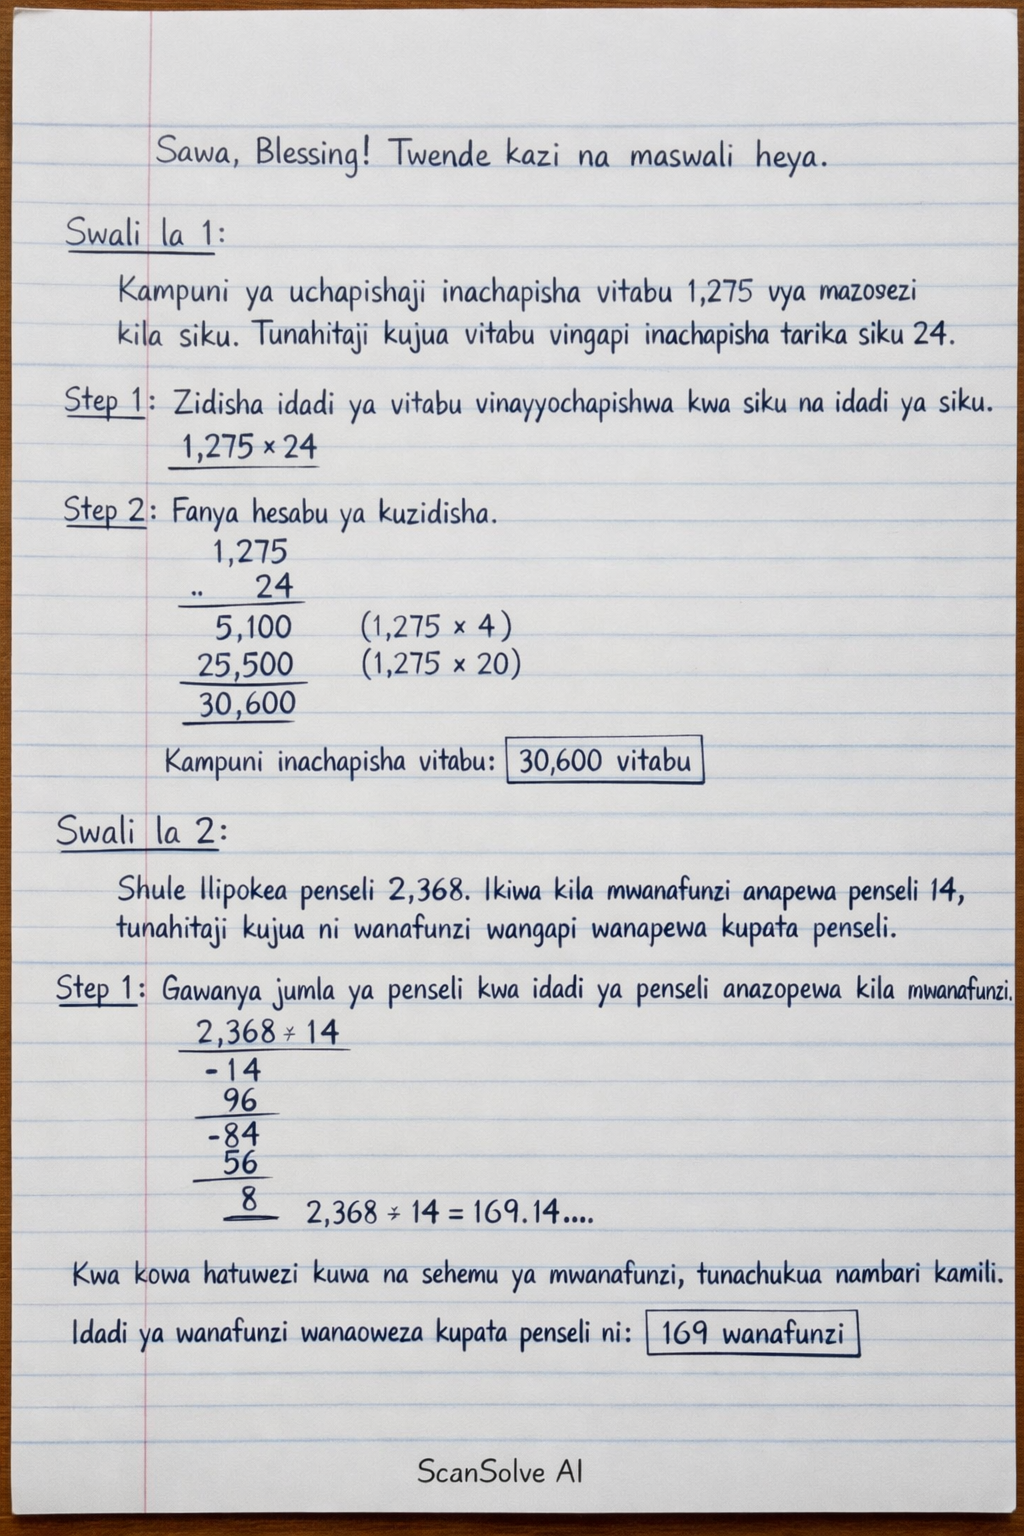 Sawa, Blessing! Twende kazi na maswali heya.
Swali la 1:
Kampuni ya uchapishaji inachapisha vitabu 1,275 vya mazosezi
kila siku. Tunahitaji kujua vitabu vingapi inachapisha tarika siku 24.
Step 1: Zidisha idadi ya vitabu vinayyochapishwa kwa siku na idadi ya siku.
1,275 × 24
Step 2: Fanya hesabu ya kuzidisha.
1,275
.. 24
5,100 (1,275 × 4)
25,500 (1,275 × 20)
30,600
Kampuni inachapisha vitabu: 30,600 vitabu
Swali la 2:
Shule Ilipokea penseli 2,368. Ikiwa kila mwanafunzi anapewa penseli 14,
tunahitaji kujua ni wanafunzi wangapi wanapewa kupata penseli.
Step 1: Gawanya jumla ya penseli kwa idadi ya penseli anazopewa kila mwanafunzi.
2,368 ÷ 14
-14
96
-84
56
8 2,368 ÷ 14 = 169.14....
Kwa kowa hatuwezi kuwa na sehemu ya mwanafunzi, tunachukua nambari kamili.
Idadi ya wanafunzi wanaoweza kupata penseli ni: 169 wanafunzi
ScanSolve AI